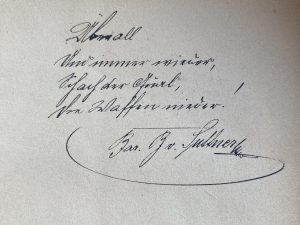 Überall
Und immer wieder,
Schach der Qual,
Die Waffen nieder!
Bar. B v. Suttner